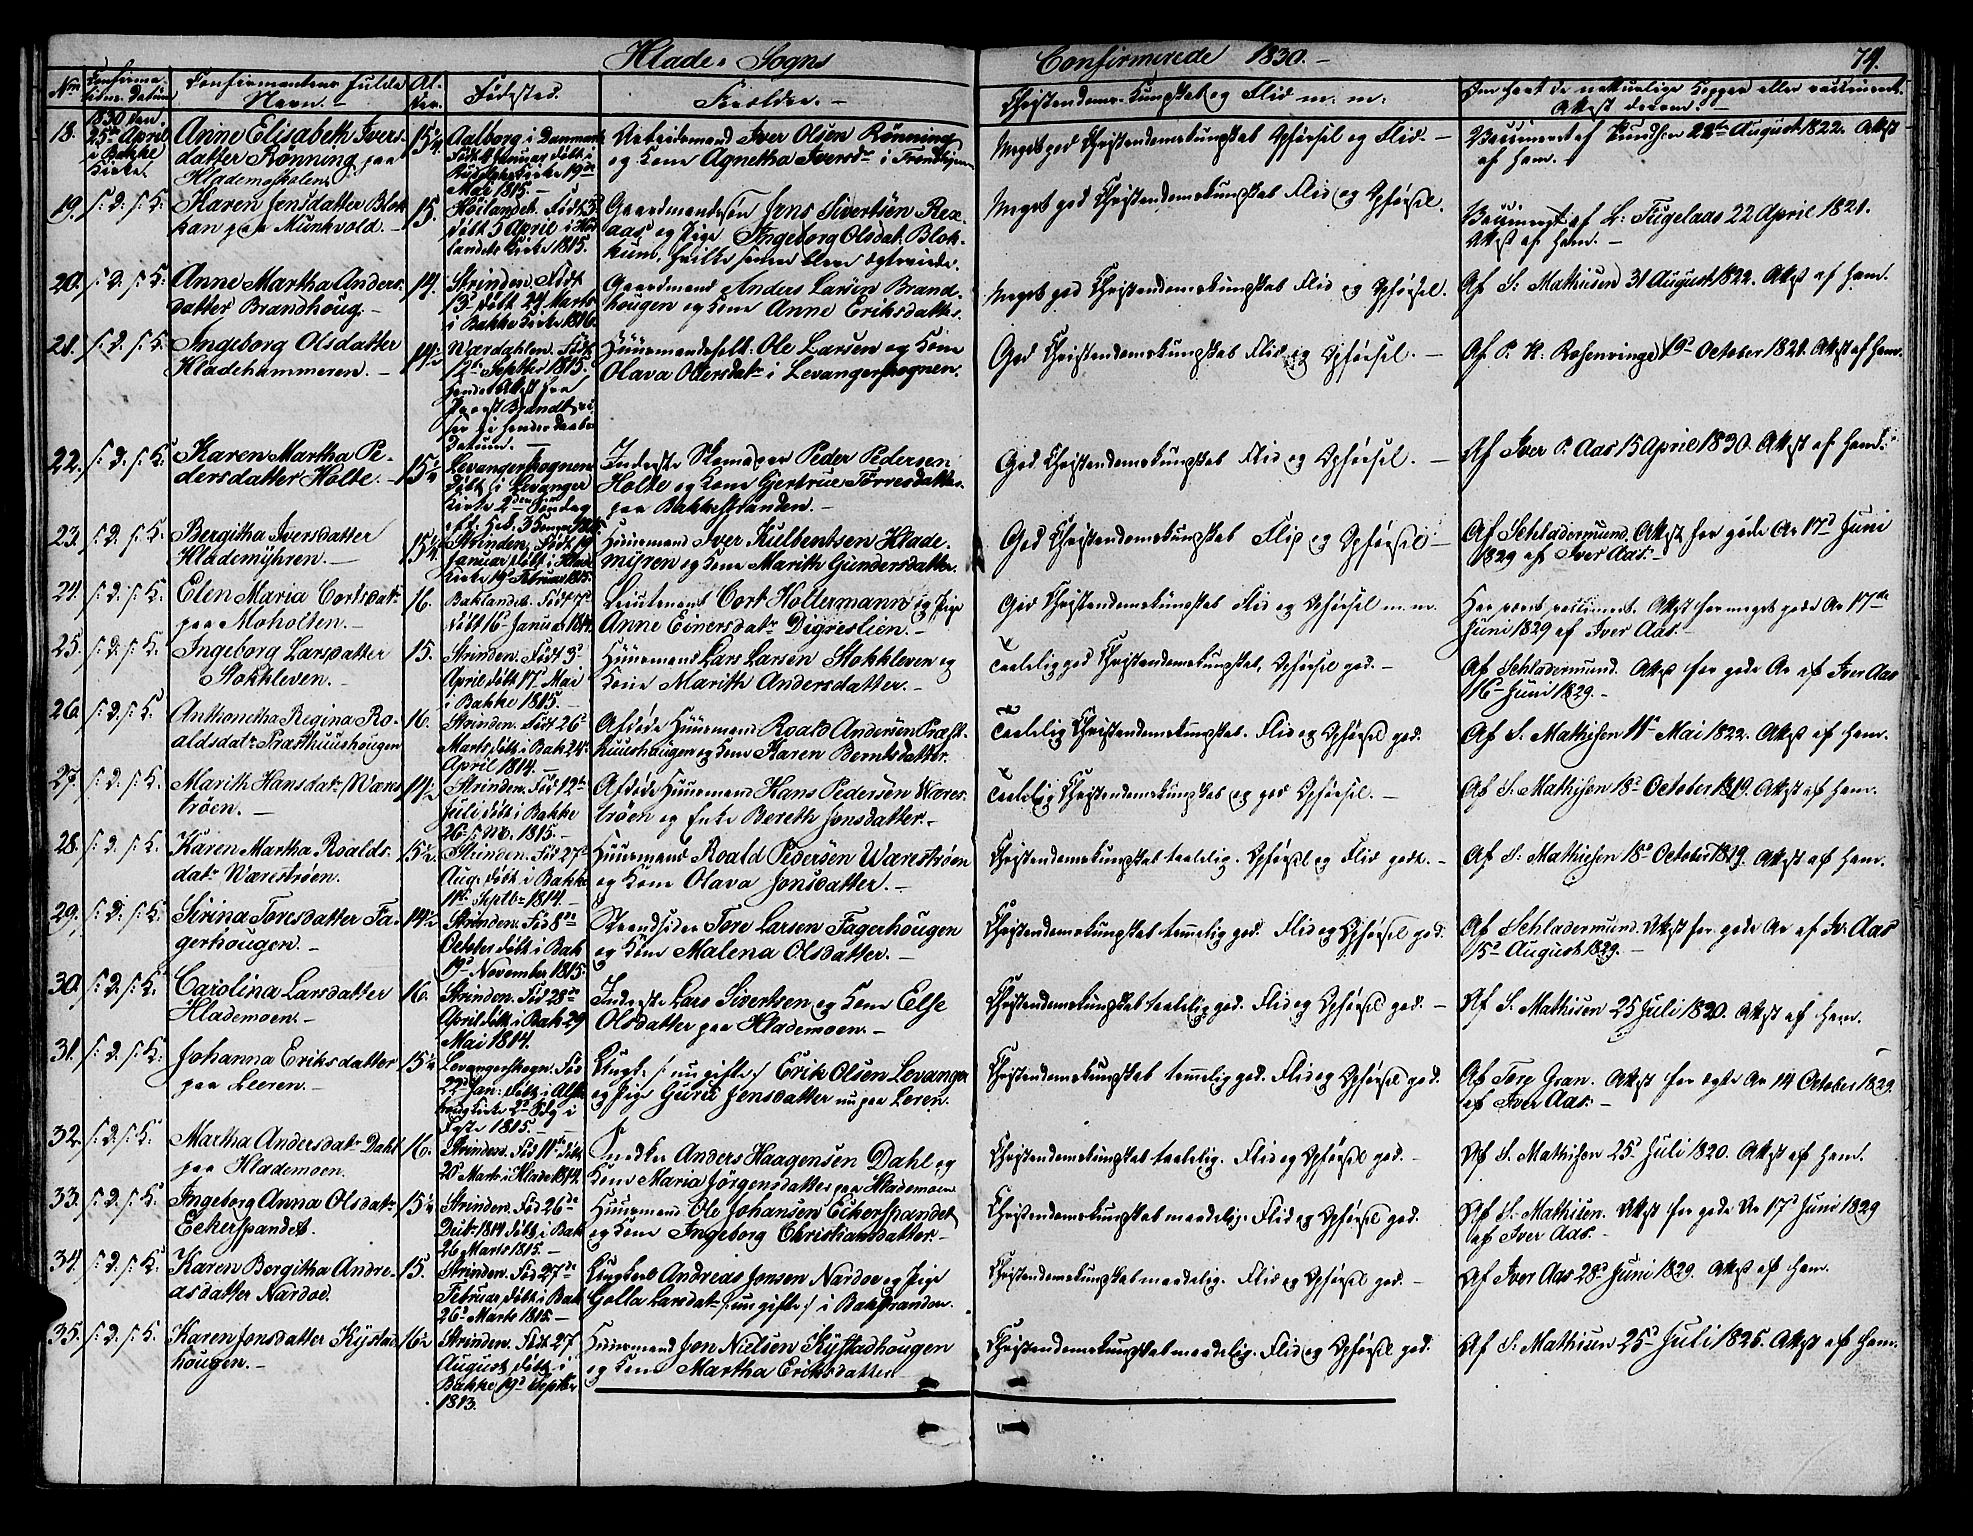 Hlade Sogns
Confirmerede 1830.
79.
Nr. Confirmations Datum Confirmantens fulde Navn. Alder. Födsted. Forældre. Christendoms Kundskab og Flid m. m. Om havt de naturlige Kopper eller vaccineret. Attest derom.
18. 1830 den 25de April i Bakke Kirke. Anne Elisabeth Iversdatter Rönning paa Hlademoskolen. 15¼ Aalborg i Danmark Mai 1815. Arbeidsmand Iver Olsen Rönning og Kone Agnetha Iversdr. i Trondhjem. Meget god Christendomskundskab Opförsel og Flid. August 1822. Attest af ham.
19. s. D. s. K. Karen Jonsdatter Blokkan paa Munkvold. 15. Höilandet. Födt 3 döbt 5 April i Höilandets Kirke 1815. Gaardmandssön Jens Sivertsen Rexaas og Pige Ingeborg Olsdat. Blokkum, hvilke senere bleve ægteviede. Meget god Christendomskundskab Flid og Opförsel. Vaccineret af L. Fuglaas 22 April 1821. Attest af ham.
20. s. D. s. K. Anne Martha Andersdatter Brandhoug. 14. Strinden. Födt 13d döbt 24 Marts i Bakke Kirke 1816. Gaardmand Anders Larsen Brandhougen og Kone Anne Eriksdatter. Meget god Christendomskundskab Flid og Opförsel. Af S. Mathisen 31 August 1822. Attest af ham.
21. s. D. s. K. Ingeborg Olsdatter Hladehammeren. 14½ Værdahlen. Födt 12d Septbr 1815. Huusmandsfolk: Ole Larsen og Kone Olava Ottersdatr. i Levangersognen. God Christendomskundskab Flid og Opförsel. Af P. K. Rosenvinge 19d October 1821. Attest af ham.
22. s. D. s. K. Karen Martha Pedersdatter Holte. 15¼ Levangersognen. Döbt i Levanger Kirke Inderste Skomager Peder Pedersen Holte og Kone Gjertrue Torresdatter paa Bakkestranden. God Christendomskundskab Flid og Opförsel. Af Iver P. Aas 15 April 1830. Attest af ham.
23. s. D. s. K. Bergitha Iversdatter Hlademyhren. 15¼ Strinden. Födt Januar döbt i Hlade Kirke 19d Februar 1815. Huusmand Iver Kulbentsen Hlademyren og Kone Marith Gundersdatter. God Christendomskundskab Flid og Opförsel Af Schladermund. Attest for gode Ar 17d Juni 1829 af Iver Aas.
24. s. D. s. K. Elen Maria Cortsdatr. paa Moholten. 16. Baklandet. Födt 7d döbt 16 Januar 1814. Lieutenant Cort Holtermann og Pige Anne Einersdatr. Digreslien. God Christendomskundskab Flid og Opförsel m. m. Har været vaccineret. Attest for meget gode Ar 17de Juni 1829 af Iver Aas.
25. s. D. s. K. Ingeborg Larsdatter Stokkleven. 15. Strinden. Födt 3d April döbt 17 Mai i Bakke 1815. Huusmand Lars Larsen Stokkleven og Kone Marith Andersdatter. Taalelig god Christendomskundskab, Opförsel god. Af Schladermund. Attest for gode Ar af Iver Aas 16 Juni 1829.
26. s. D. s. K. Anthonetha Regina Roaldsdatr. Præsthuushougen 16. Strinden. Födt 26d Marts döbt i Bak. 24d April 1814. Afdöde Huusmand Roald Andersen Præsthuushougen og Kone Karen Berntsdatter. Taalelig Christendomskundskab. Flid og Opförsel god. Af S. Mathisen 11d Mai 1822. Attest af ham.
27. s. D. s. K. Marith Hansdatr. Wærestrøen. 14½ Strinden. Föd 12de Juli döbt i Bakke 26 s. M. 1815. Afdöde Huusmand Hans Pedersen Wærestrøen og Enke Bereth Jonsdatter. Taalelig Christendomskundskab og god Opförsel. Af S. Mathisen 18d October 1819. Attest af ham.
28. s. D. s. K. Karen Martha Roaldsdatr. Wærestrøen. 15½ Strinden. Föd 27d Aug. döbt i Bakke 11d Septbr 1814. Huusmand Roald Pedersen Wærestrøen og Kone Olava Jonsdatter. Christendomskundskab taalelig. Opförsel og Flid gode. Af S. Mathisen 18d October 1819. Attest af ham.
29. s. D. s. K. Sirina Toresdatter Fagerhougen. 14½ Strinden. Föd 8de October döbt i Bak. 19d November 1815. Strandsidder Tore Larsen Fagerhougen og Kone Malena Olsdatter. Christendomskundskab temmelig god. Flid og Opförsel god. Af Schladermund. Attest for gode Ar af Iv. Aas 15d August 1829.
30. s. D. s. K. Carolina Larsdatter Hlademoen. 16. Strinden. Föd 28de April döbt i Bak. 29 Mai 1814. Inderste Lars Sivertsen og Kone Else Olsdatter paa Hlademoen. Christendomskundskab taalelig god. Flid og Opförsel god. Af S. Mathisen 25 Juli 1820. Attest af ham.
31. s. D. s. K. Johanna Eriksdatter paa Leeren. 15¼ Levangersogn. Föd 22d Jan. Faste 1815. Ungk. /:ungifte:/ Erik Olsen Levanger og Pige Guru Jonsdatter nu paa Leren. Christendomskundskab temmelig god. Flid og Opförsel god. Af Tore Gran. Attest for ægte Ar 14 October 1829 af Iver Aas.
32. s. D. s. K. Martha Andersdatr. Dahl paa Hlademoen. 16. Strinden. Föd 11te döbt 20 Marts i Hlade 1814. Snedker Anders Haagensen Dahl og Kone Maria Jörgensdatter paa Hlademoen Christendomskundskab taalelig. Flid og Opförsel god. Af S. Mathisen 25d Juli 1820. Attest af ham.
33. s. D. s. K. Ingeborg Anna Olsdatr. Eckerspandet. 15¼ Strinden. Föd 26de Decbr. 1814 döbt i Bak. 26 Marts 1815. Huusmand Ole Johansen Eckerspandet og Kone Ingeborg Christiansdatter. Christendomskundskab maadelig. Flid og Opförsel god. Af S. Mathisen. Attest for gode Ar 17d Juni 1829 af Iver Aas.
34. s. D. s. K. Karen Bergitha Andreasdatter Nardoe. 15. Strinden. Föd 27de Februar döbt i Bak. 26d Marts 1815. Ungkarl Andreas Jonsen Nardoe og Pige Golla Larsdatr. /:ungifte:/ i Bakstranden. Christendomskundskab maadelig. Flid og Opförsel god. Af Iver Aas 28d Juni 1829. Attest af ham.
35. s. D. s. K. Karen Jonsdatter Kystadhougen. 16½ Strinden. Födt 27 August döbt i Bakke 19d Septbr 1813. Huusmand Jon Nielsen Kystadhougen og Kone Martha Eriksdatter. Christendomskundskab maadelig. Flid og Opförsel god. Af S. Mathisen 25d Juli 1825. Attest af ham.